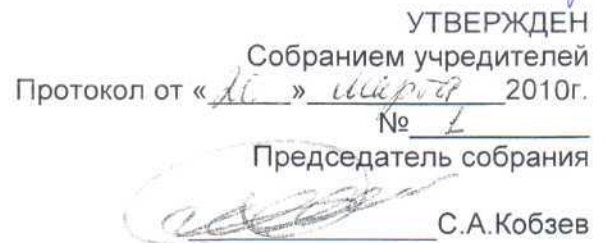 УТВЕРЖДЕН
Собранием учредителей
Протокол от « » марта 2010г.
№ 1
Председатель собрания
С.А.Кобзев